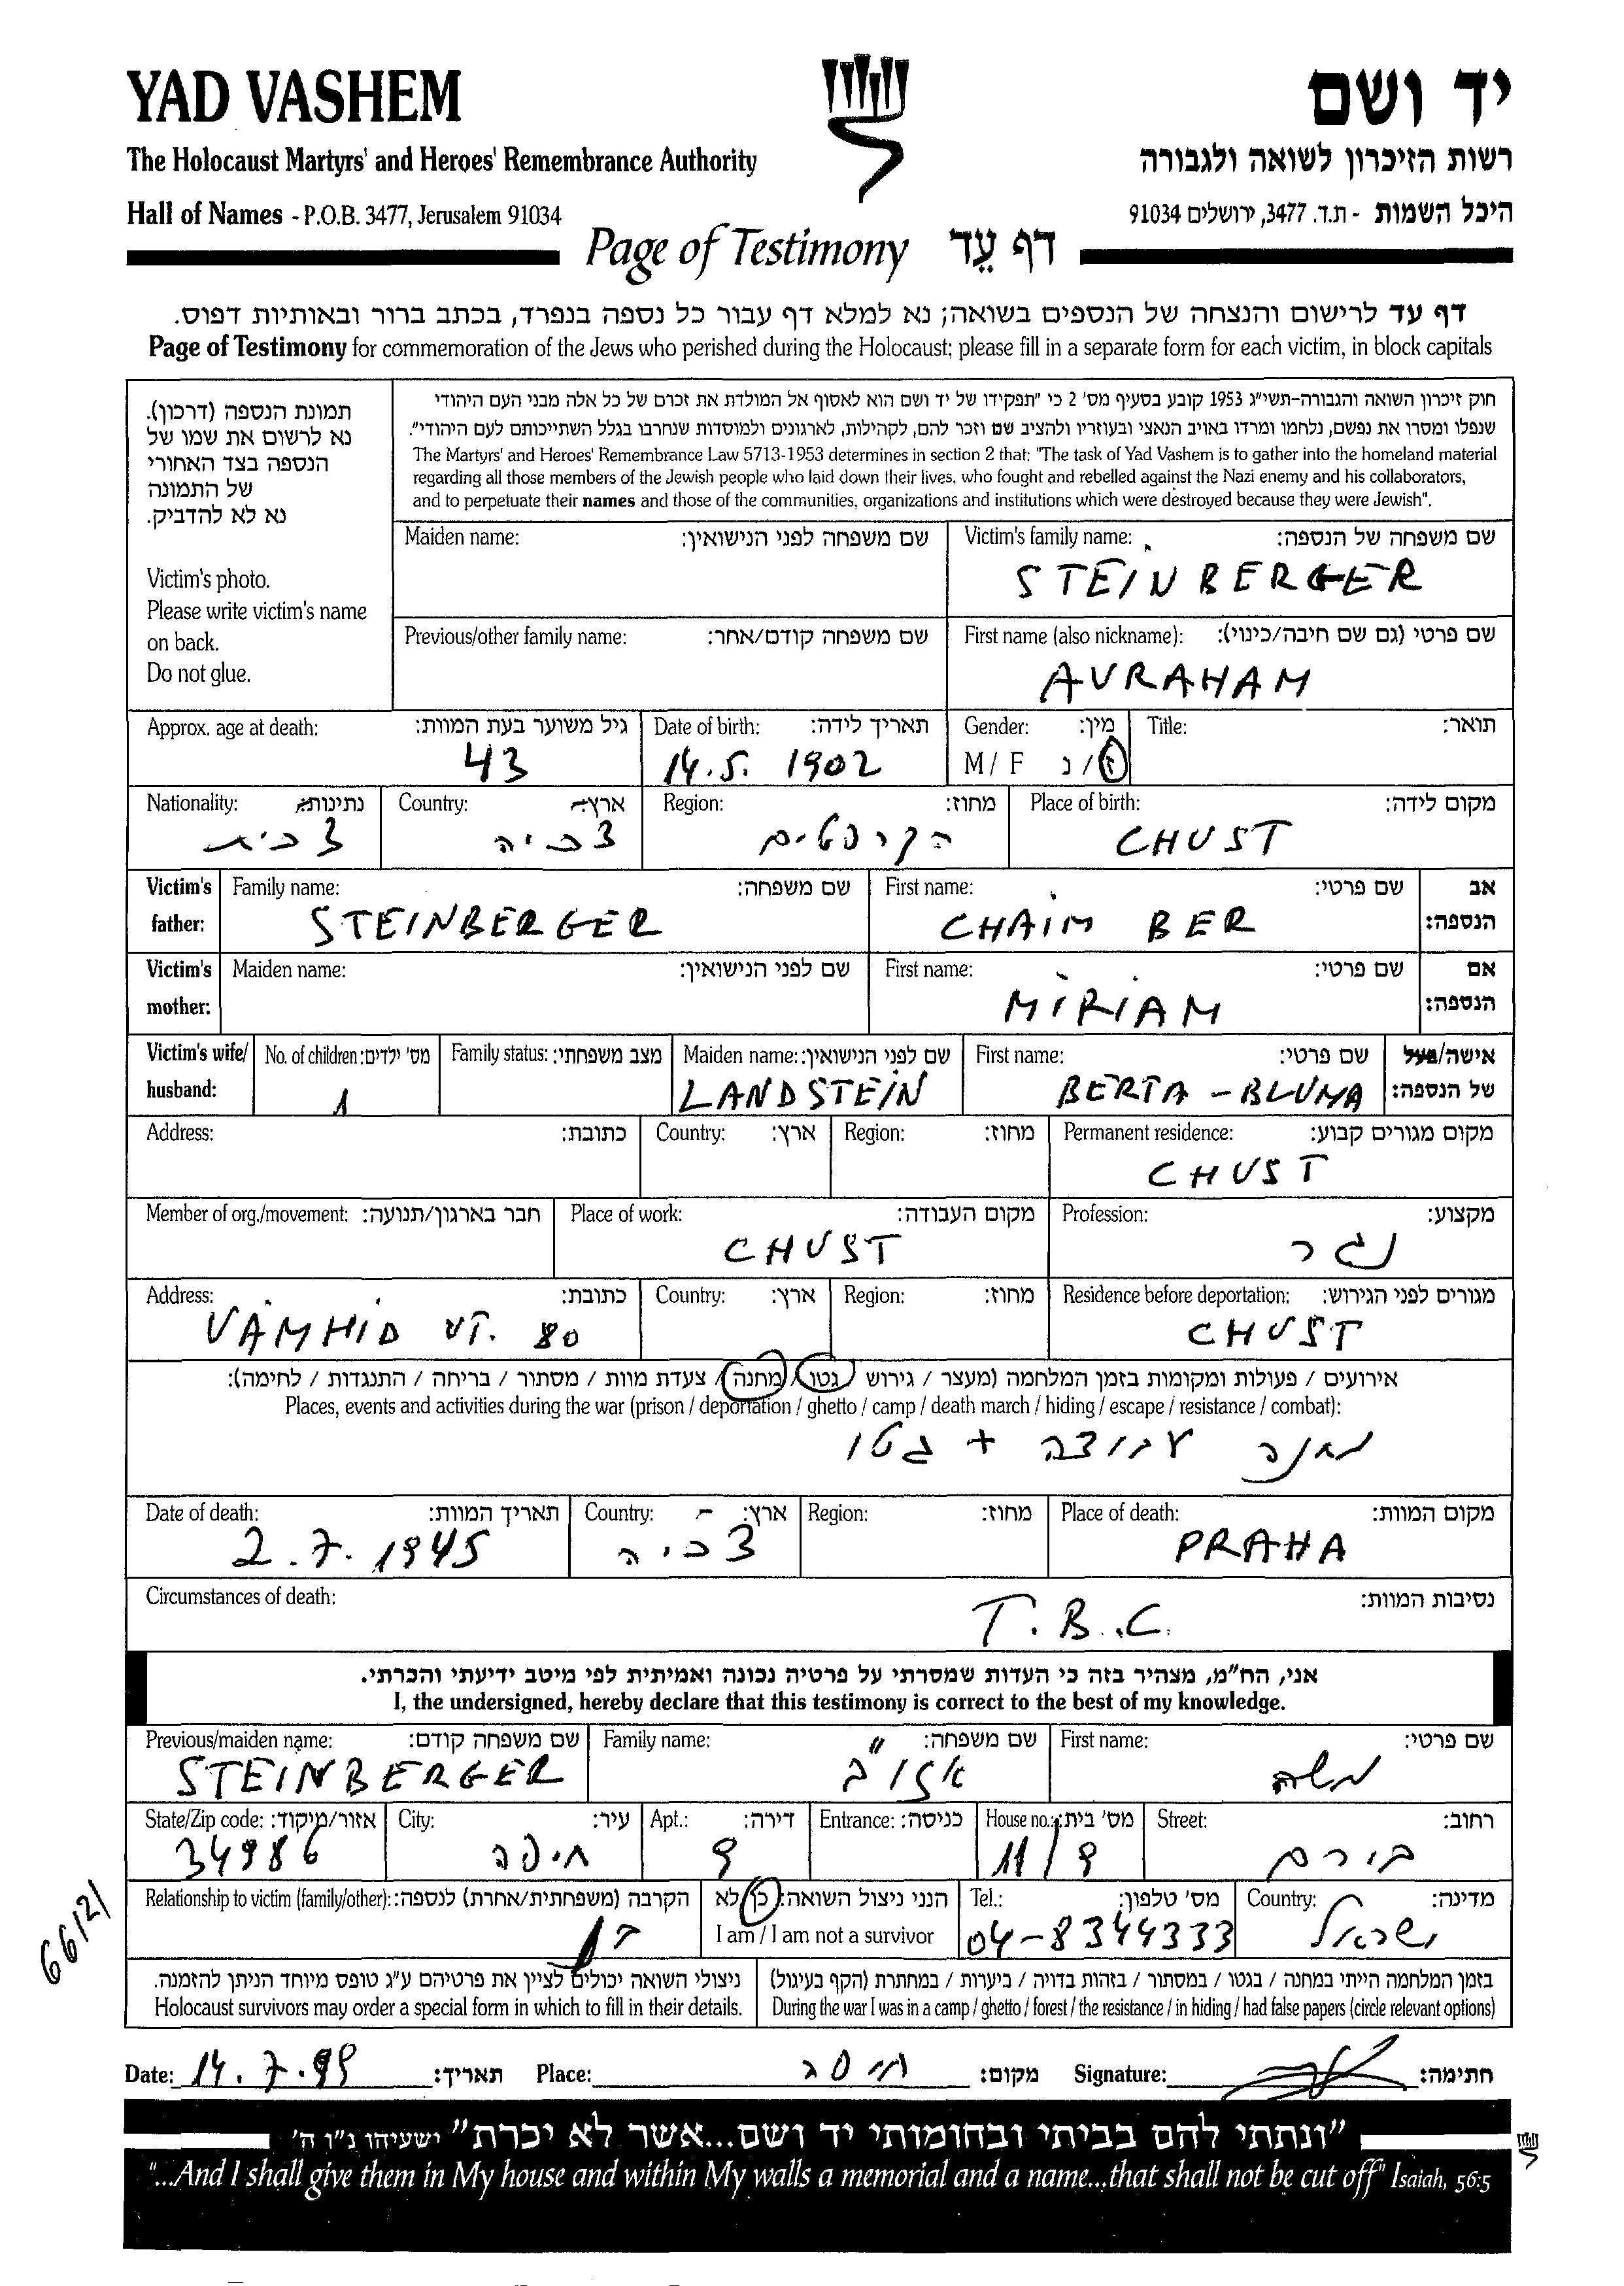 YAD VASHEM
יד ושם
The Holocaust Martyrs' and Heroes' Remembrance Authority
רשות הזיכרון לשואה ולגבורה
Hall of Names - P.O.B. 3477, Jerusalem 91034
היכל השמות - ת.ד. 3477, ירושלים 91034
Page of Testimony דף עֵד
דף עד לרישום והנצחה של הנספים בשואה; נא למלא דף עבור כל נספה בנפרד, בכתב ברור ובאותיות דפוס.
Page of Testimony for commemoration of the Jews who perished during the Holocaust; please fill in a separate form for each victim, in block capitals
תמונת הנספה (דרכון).
נא לרשום את שמו של
הנספה בצד האחורי
של התמונה
נא לא להדביק.
Victim's photo.
Please write victim's name
on back.
Do not glue.
חוק זיכרון השואה והגבורה-תשי"ג 1953 קובע בסעיף מס' 2 כי "תפקידו של יד ושם הוא לאסוף אל המולדת את זכרם של כל אלה מבני העם היהודי
שנפלו ומסרו את נפשם, נלחמו ומרדו באויב הנאצי ובעוזריו ולהציב שם וזכר להם, לקהילות, לארגונים ולמוסדות שנחרבו בגלל השתייכותם לעם היהודי".
The Martyrs' and Heroes' Remembrance Law 5713-1953 determines in section 2 that: "The task of Yad Vashem is to gather into the homeland material
regarding all those members of the Jewish people who laid down their lives, who fought and rebelled against the Nazi enemy and his collaborators,
and to perpetuate their names and those of the communities, organizations and institutions which were destroyed because they were Jewish".
Maiden name: שם משפחה לפני הנישואין:
Victim's family name: שם משפחה של הנספה:
STEINBERGER
Previous/other family name: שם משפחה קודם/אחר:
First name (also nickname): שם פרטי (גם שם חיבה/כינוי):
AVRAHAM
Approx. age at death: גיל משוער בעת המוות:
43
Date of birth: תאריך לידה:
14.5. 1902
Gender: מין:
M / F ז / נ
Title: תואר:
Nationality: נתינות:
צ'כית
Country: ארץ:
צ'כיה
Region: מחוז:
הקרפטים
Place of birth: מקום לידה:
CHUST
Victim's father: אב הנספה:
Family name: שם משפחה:
STEINBERGER
First name: שם פרטי:
CHAIM BER
Victim's mother: אם הנספה:
Maiden name: שם לפני הנישואין:
First name: שם פרטי:
MIRIAM
Victim's wife/ husband: אישה/בעל של הנספה:
No. of children: מס' ילדים:
1
Family status: מצב משפחתי:
Maiden name: שם לפני הנישואין:
LANDSTEIN
First name: שם פרטי:
BERTA - BLUMA
Address: כתובת:
Country: ארץ:
Region: מחוז:
Permanent residence: מקום מגורים קבוע:
CHUST
Member of org./movement: חבר בארגון/תנועה:
Place of work: מקום העבודה:
CHUST
Profession: מקצוע:
נגר
Address: כתובת:
VÁMHID UT. 80
Country: ארץ:
Region: מחוז:
Residence before deportation: מגורים לפני הגירוש:
CHUST
אירועים / פעולות ומקומות בזמן המלחמה (מעצר / גירוש / גטו / מחנה / צעדת מוות / מסתור / בריחה / התנגדות / לחימה):
Places, events and activities during the war (prison / deportation / ghetto / camp / death march / hiding / escape / resistance / combat):
מחנה עבודה + גטו
Date of death: תאריך המוות:
2.7.1945
Country: ארץ:
צ'כיה
Region: מחוז:
Place of death: מקום המוות:
PRAHA
Circumstances of death: נסיבות המוות:
T.B.C.
אני, הח"מ, מצהיר בזה כי העדות שמסרתי על פרטיה נכונה ואמיתית לפי מיטב ידיעתי והכרתי.
I, the undersigned, hereby declare that this testimony is correct to the best of my knowledge.
Previous/maiden name: שם משפחה קודם:
STEINBERGER
Family name: שם משפחה:
First name: שם פרטי:
משה
State/Zip code: אזור/מיקוד:
34986
City: עיר:
חיפה
Apt.: דירה:
9
Entrance: כניסה:
House no.: מס' בית:
11/9
Street: רחוב:
בירם
Relationship to victim (family/other): הקרבה (משפחתית/אחרת) לנספה:
בן
הנני ניצול השואה: כן / לא
I am / I am not a survivor
Tel.: מס' טלפון:
04-8344333
Country: מדינה:
ישראל
6612/
ניצולי השואה יכולים לציין את פרטיהם ע"ג טופס מיוחד הניתן להזמנה.
Holocaust survivors may order a special form in which to fill in their details.
בזמן המלחמה הייתי במחנה / בגטו / במסתור / בזהות בדויה / ביערות / במחתרת (הקף בעיגול)
During the war I was in a camp / ghetto / forest / the resistance / in hiding / had false papers (circle relevant options)
Date: 14.7.99 תאריך:
Place: מקום:
Signature: חתימה:
"ונתתי להם בביתי ובחומותי יד ושם...אשר לא יכרת" ישעיהו נ"ו ה'
"...And I shall give them in My house and within My walls a memorial and a name...that shall not be cut off" Isaiah, 56:5